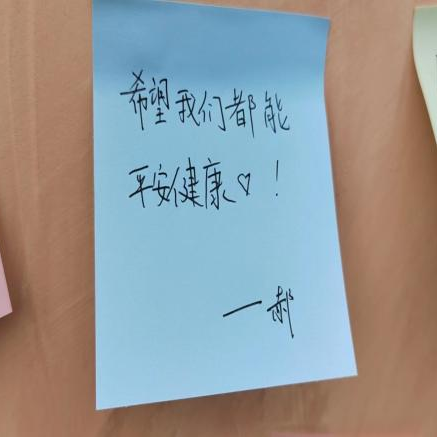 希望我们都能
平安健康♡！
一郝